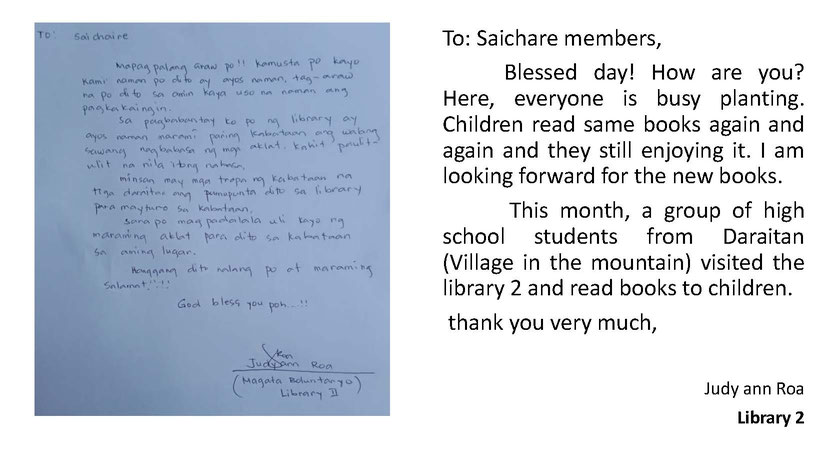 TO: Saichaire
Mapag palang araw po!! kamusta po kayo
kami naman po dito ay ayos naman, tag-araw
na po dito sa amin kaya uso na naman ang
pagkakaingin.
Sa pagbabantay ko po ng library ay
ayos naman marami paring kabataan ang walang
sawang nagbabasa ng mga aklat. kahit paulit-
ulit na nila itong nabasa.
minsan may mga tropa ng kabataan na
tiga daraitan ang pumupunta dito sa library
para magturo sa kabataan.
sana po magpadalala uli kayo ng
maraming aklat para dito sa kabataan
sa aming lugar.
Hanggang dito nalang po at maraming
Salamat!!!!
God bless you poh..!!
Judy ann Roa
(Magata Boluntaryo)
Library II
To: Saichare members,
Blessed day! How are you?
Here, everyone is busy planting.
Children read same books again and
again and they still enjoying it. I am
looking forward for the new books.
This month, a group of high
school students from Daraitan
(Village in the mountain) visited the
library 2 and read books to children.
thank you very much,
Judy ann Roa
Library 2